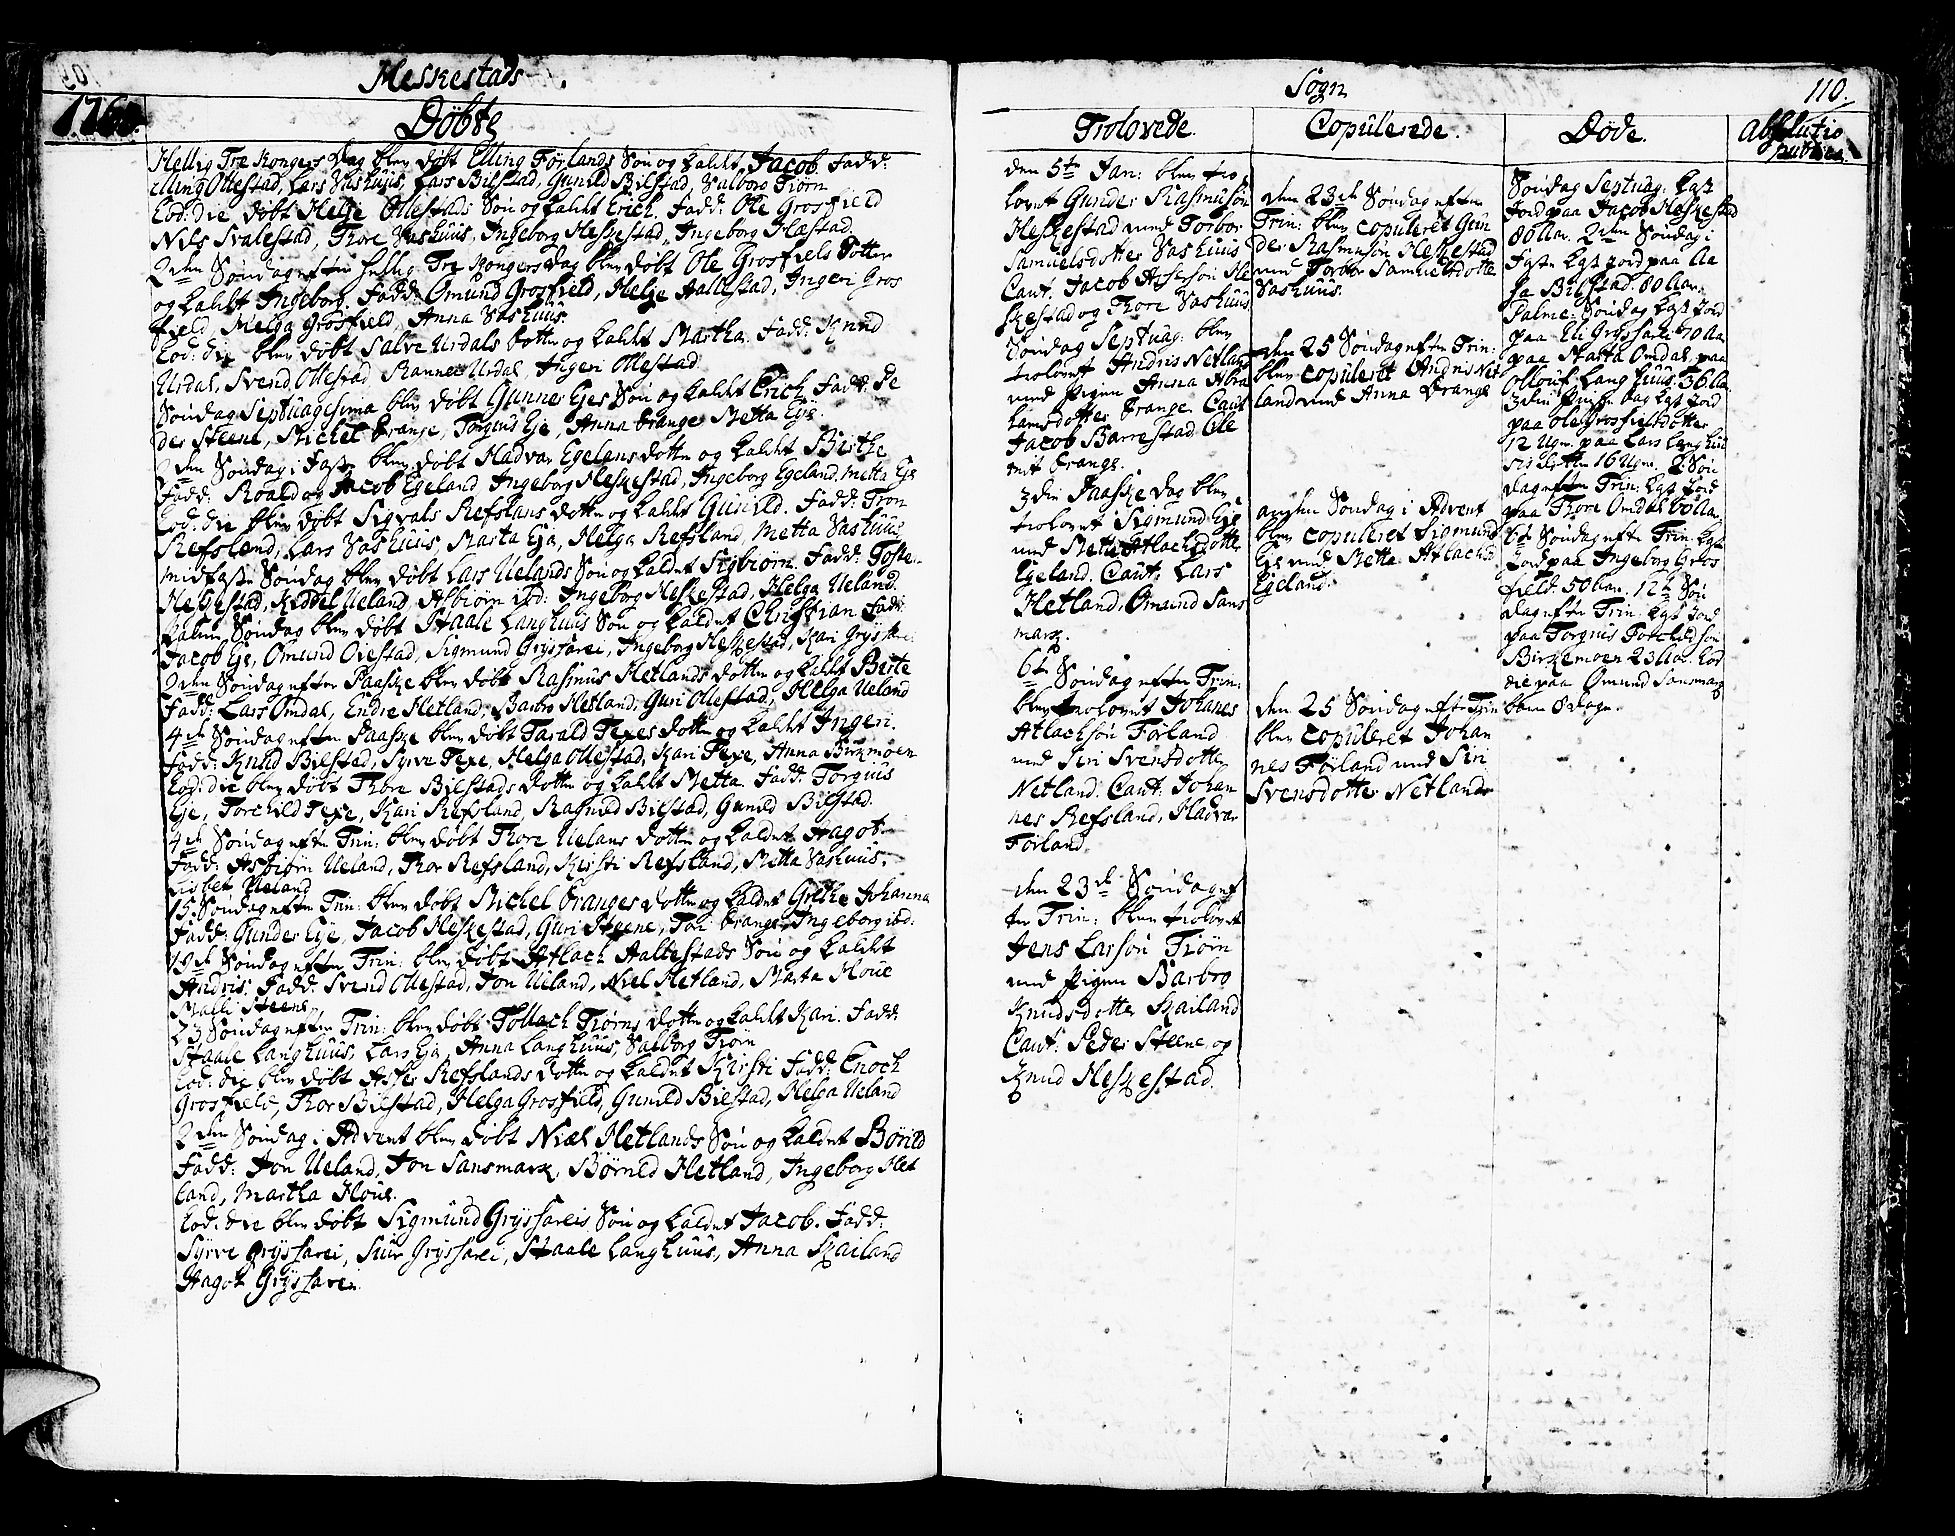 Heskestads
Døbte
Hellig Tre Kongers Dag blev døbt Elling Førlands Søn og kaldt Jacob. Fadd:
Elling Ollestad, Lars Vashuus, Lars Bilstad, Gunild Bilstad, Valborg Tiørn
Eod: die døbt Helje Ollestads Søn og kaldt Erich. Fadd: Ole Grosfield
Nils Svalestad, Thore Vashuus, Ingeborg Heskestad, Ingeborg Flæstad.
2den Søndag efter Hellig Tre Kongers Dag blev døbt Ole Grosfiels Dotter
og kaldt Ingeborg. Fadd: Omund Grosfield, Helje Aallestad, Ingeri Gros
field, Helga Grosfield, Anna Vashuus.
Eod: die blev døbt Salve Urdals Dotter og kaldt Martha. Fadd: Knud
Urdal, Svend Ollestad, Ranne Urdal, Ingeri Ollestad
Søndag Septuagesima blev døbt Gunner Ejes Søn og kaldt Erich. Fadd: Pe
der Steene, Michel Drange, Torgiud Eje, Anna Drange, Metta Eje.
2den Søndag i Faste blev døbt Hadvar Egelans Dotter og kaldt Berthe
Fadd: Roald og Jacob Egeland, Ingeborg Heskestad, Ingeborg Egeland, Metta Eje
Eod: die blev døbt Sigvals Refslans Dotter og kaldt Gunild. Fadd: Tjon
Refsland, Lars Vashuus, Marta Eja, Helga Refsland, Metta Vashuus
Midfaste Søndag blev døbt Lars Uelands Søn og kaldet Asbiørn. Fadd: Toste
Heskestad, Keddel Ueland, Asbiørn ibd: Ingeborg Heskestad, Helga Ueland
Palme Søndag blev døbt Staale Langhuus Søn og kaldet Christian. Fadd:
Jacob Eje, Omund Ovestad, Sigmund Gryssarei, Ingeborg Heskestad, Kari Gryssarei
2den Søndag efter Paaske blev døbt Rasmus Hetlands Dotter og kaldt Birte
Fadd: Lars Omdal, Endre Hetland, Barbro Hetland, Guri Ollestad, Helga Ueland
4de Søndag efter Paaske blev døbt Tarald Texes Dotter og kaldt Ingeri.
Fadd: Knud Bilstad, Syrve Texe, Helga Ollestad, Kari Texe, Anna Birkemoen
Eod: die blev døbt Thore Bilstads Dotter og kaldt Metta. Fadd: Torguis
Eje, Torchild Texe, Kari Refsland, Ragnild Bilstad, Gunild Bilstad.
4de Søndag efter Trin: blev døbt Thore Uelans Dotter og kaldet Hagot.
Fadd: Asbiørn Ueland, Thor Refsland, Kirsti Refsland, Metta Vashuus,
Lisbet Ueland
15 Søndag efter Trin: blev døbt Michel Dranges Dotter og kaldet Grethe Johanna
Fadd: Gunder Eje, Jacob Heskestad, Guri Steene, Tori Drange, Ingeborg ibd:
19de Søndag efter Trin: blev døbt Atlach Aaltestads Søn og kaldet
Andris. Fadd: Svend Ollestad, Jon Ueland, Niel Hetland, Marta Houe
Malli Steene
23 Søndag efter Trin: blev døbt Tollach Tiørns Dotter og kaldt Kari. Fadd:
Staale Langhuus, Lars Eja, Anna Langhuus, Valborg Tiørn
Eod: die blev døbt Asser Refslands Dotter og kaldet Kirsti. Fadd: Enoch
Grosfield, Thor Bilstad, Helga Grosfield, Gunild Bilstad, Helga Ueland
2den Søndag i Advent blev døbt Niæl Hetlands Søn og kaldet Børild
Fadd: Jon Ueland, Jon Sansmark, Børild Hetland, Ingeborg Het
land, Martha Houe.
Eod: die blev døbt Sigmund Gryssareis Søn og kaldet Jacob. Fadd:
Syrve Gryssarei, Siur Gryssarei, Staale Langhuus, Anna Skailand
Hagot Gryssarei.
Sogn
110.
Trolovede.
den 5te Jan: blev tro
lovet Gunder Rasmuson
Heskestad med Torbor
Samuelsdotter Vashuus
Caut. Jacob Asseson He
skestad og Thore Vashuus
Søndag Septuag: blev
trolovet Andris Netland
med Pigen Anna Abra
hamsdotter Drange. Caut
Jacob Barrestad. Ole
mit Drange.
3die Paaske Dag blev
trolovet Sigmund Eje
med Mette Atlachsdotter
Egeland. Caut: Lars
Hetland, Omund Sans
mark.
6te Søndag efter Trin:
blev trolovet Johanes
Atlachson Førland
med Siri Svensdotter
Netland. Caut: Johan
nes Refsland, Hadvar
Førland.
den 23de Søndag ef
ter Trin: blev trolovet
Jens Larson Tiørn
med Pigen Barbro
Knudsdotter Skailand
Caut: Peder Steene, og
Knud Heskestad.
Copulerede.
den 23de Søndag efter
Trin: blev copuleret Gun
der Rasmuson Heskestad
med Torbor Samuelsdotter
Vashuus.
den 25 Søndag efter Trin:
blev copuleret Andris Net
land med Anna Drange
anden Søndag i Advent
blev copuleret Sigmund
Eje med Metta Atlachsd
Egeland.
den 25 Søndag eft. Trin
blev copuleret Johan
nes Førland med Siri
Svensdotter Netland
Døde.
Søndag Septuag: kast
Jord paa Jacob Heskestad
80 Aar. 2den Søndag i
Faste kast Jord paa Aa
sa Bilstad. 80 Aar.
Palme Søndag kast Jord
paa Eli Gryssarei 70 Aar
paa Marta Omdal, paa
Ollouf Langhuus. 36 Aa.
3die Pintze Dag kast Jord
paa Ole Grosfiels dotter
12 Ugr. paa Lars Langhuu
ses dotter 16 Ugr. 2 Søn
dag efter Trin: kast Jord
paa Thore Omdal 60 Aa.
6te Søndag efter Trin: kast
Jord paa Ingeborg Gros
field. 50 Aar. 12te Søn
dag efter Trin: kast Jord
paa Torguis Torchildson
Birkemoen 23 Aar. Eod
die paa Omund Sansmarks
barn 8 dage.
Absolutio
publica